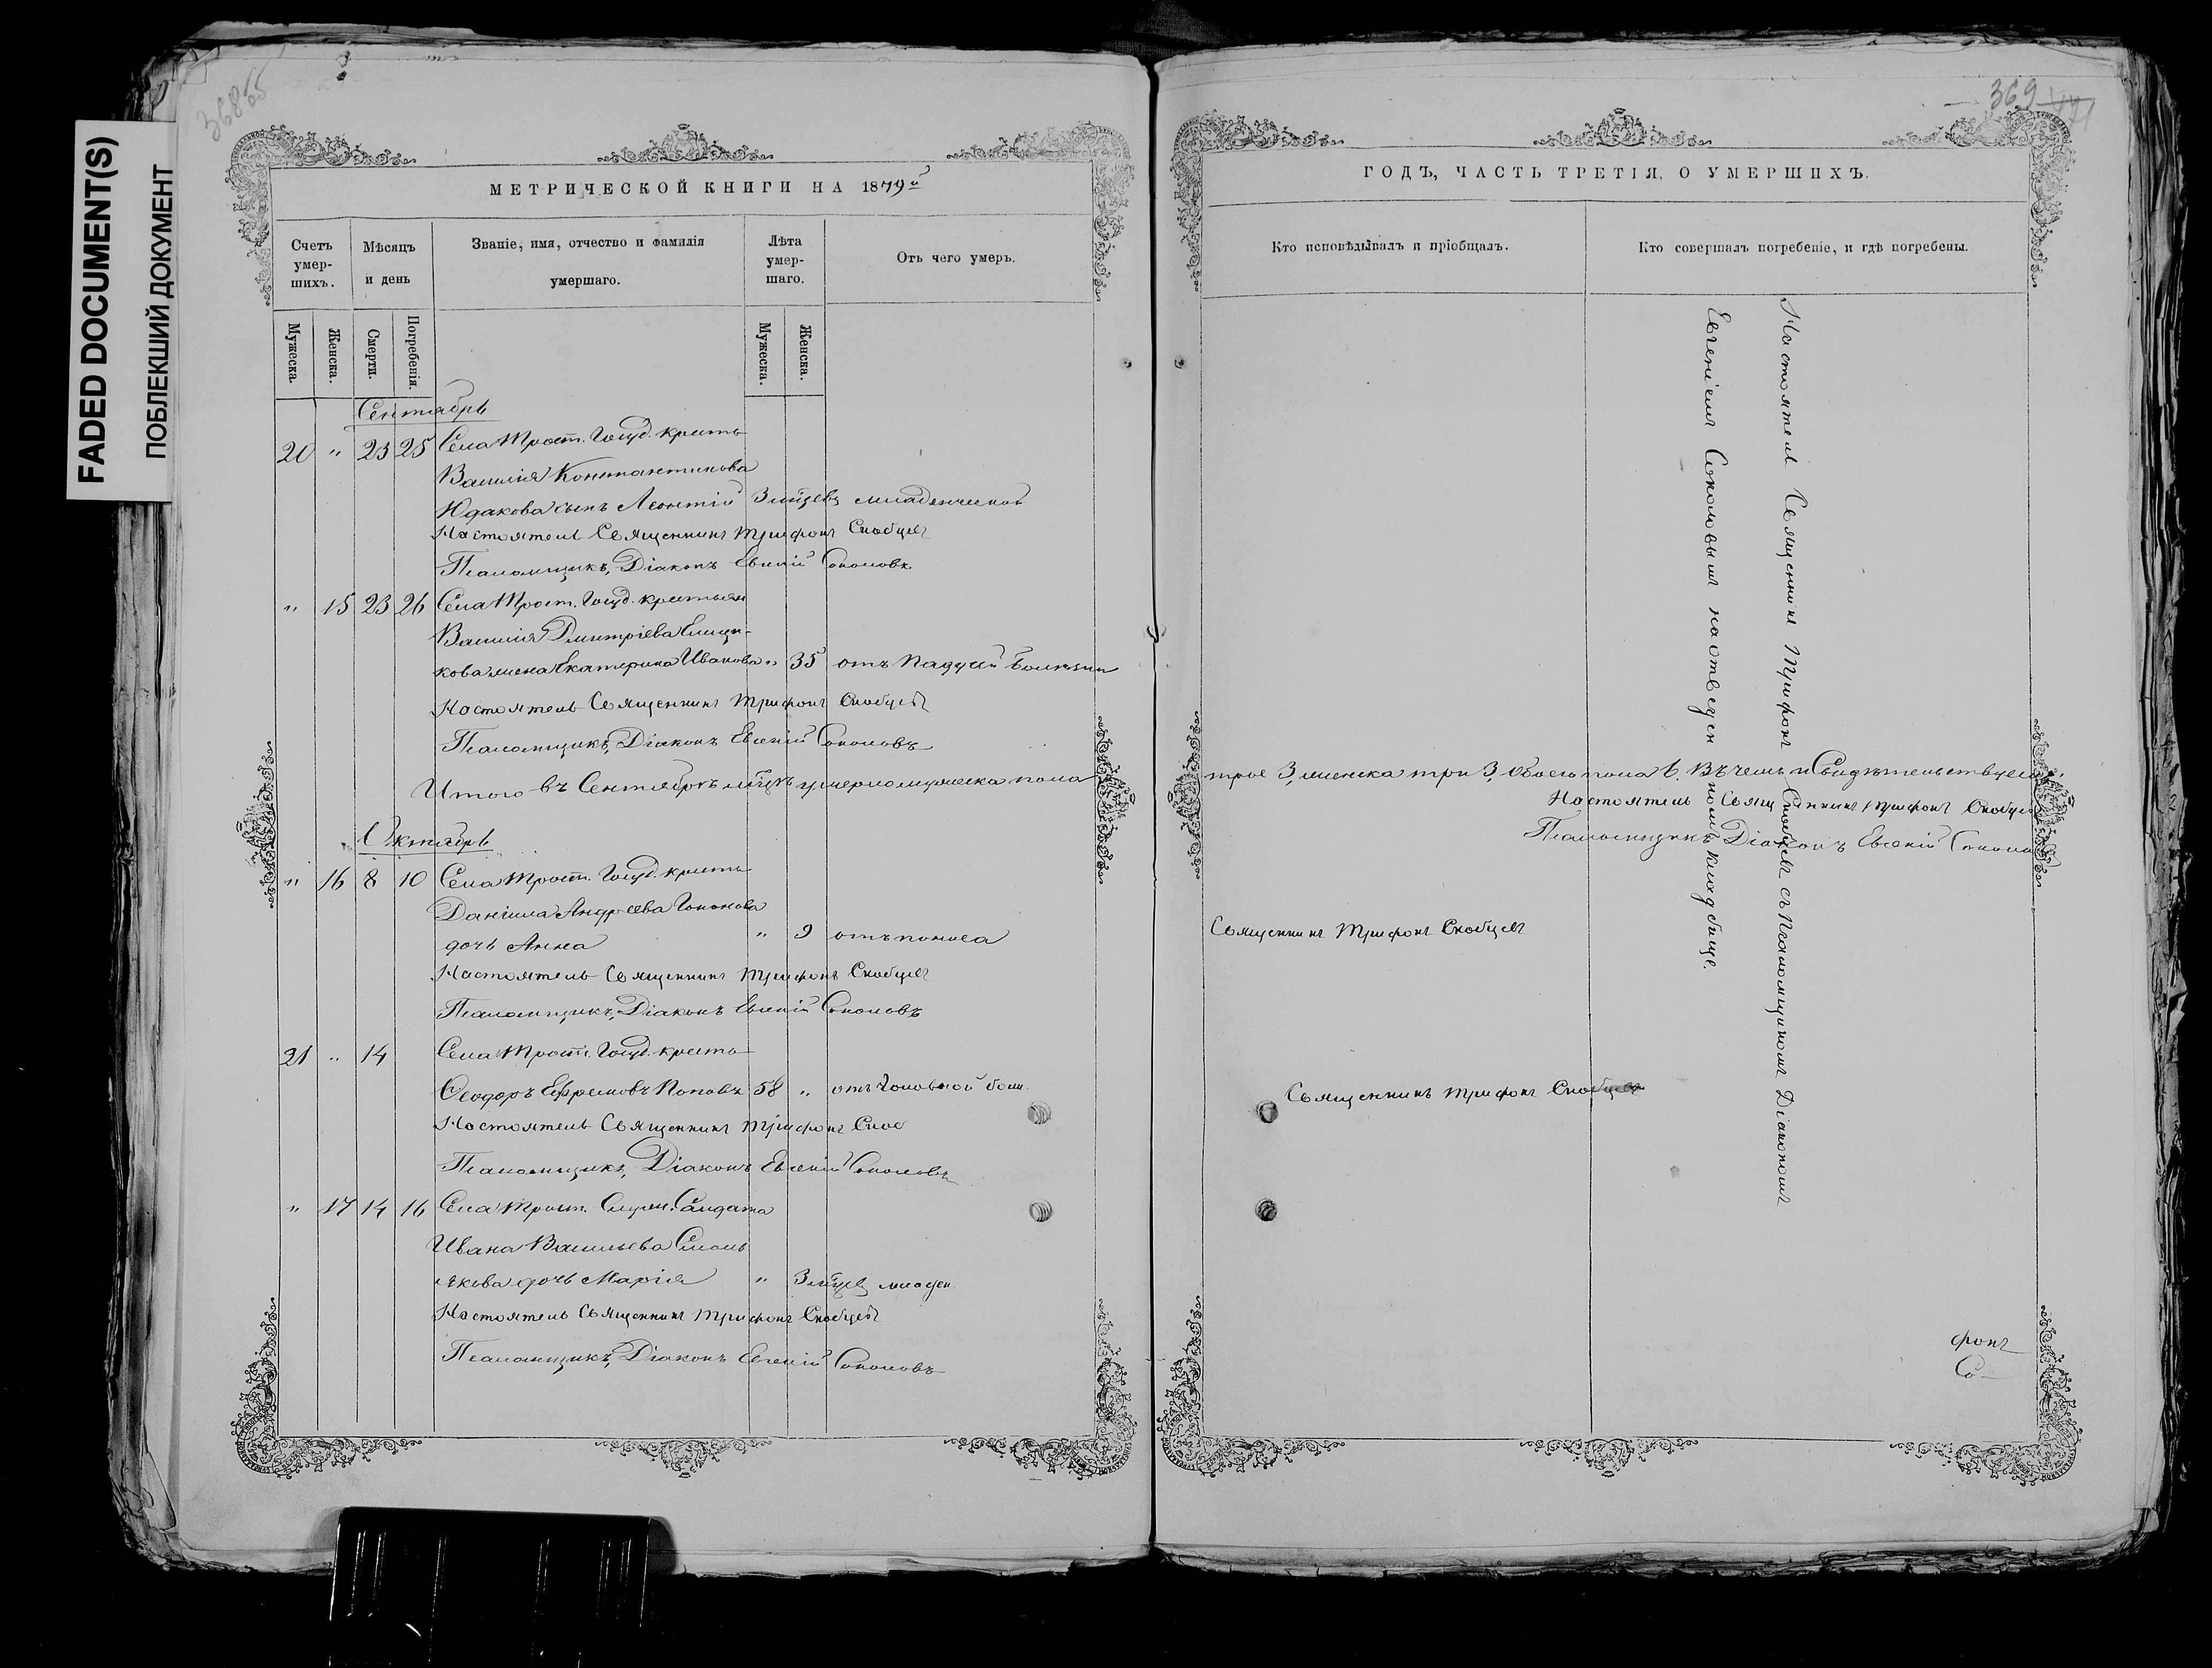 FADED DOCUMENT(S)
ПОБЛЕКШИЙ ДОКУМЕНТ
368 об
МЕТРИЧЕСКОЙ КНИГИ НА 1879й
Счетъ умер-шихъ.
Мѣсяцъ и день
Званіе, имя, отчество и фамилія умершаго.
Лѣта умер-шаго.
Отъ чего умеръ.
Мужеска.
Женска.
Смерти.
Погребенія.
Мужеска.
Женска.
Сентябрь
20 " 23 25 Села Трост. Госуд. кресть
Василія Константинова
Юдакова сынъ Леонтій 3 мѣсяцевъ младенческой
Настоятель Священникъ Трифонъ Скобцевъ
Псаломщикъ, Діаконъ Евгеній Соколовъ
" 15 23 26 Села Трост. Госуд. крестьян
Василія Дмитріева
кова жена Екатерина Иванова " 35 отъ падучей болѣзни
Настоятель Священникъ Трифонъ Скобцевъ
Псаломщикъ, Діаконъ Евгеній Соколовъ
Итого въ Сентябрѣ мѣсяцѣ умерло мужеска пола
Октябрь
" 16 8 10 Села Трост. Госуд. кресть
Даніила Андреева
дочь Анна " 9 отъ поноса
Настоятель Священникъ Трифонъ Скобцевъ
Псаломщикъ, Діаконъ Евгеній Соколовъ
21 " 14 Села Трост. Госуд. кресть
Ѳеодоръ Ефремовъ Поповъ 58 " отъ головной бол.
Настоятель Священникъ Трифонъ Скоб
Псаломщикъ, Діаконъ Евгеній Соколовъ
" 17 14 16 Села Трост. Служ. Солдата
Ивана Васильева Смоль
някова дочь Марія " 3 мѣсяцев младен
Настоятель Священникъ Трифонъ Скобцевъ
Псаломщикъ, Діаконъ Евгеній Соколовъ
369
ГОДЪ, ЧАСТЬ ТРЕТІЯ, О УМЕРШИХЪ.
Кто исповѣдывалъ и пріобщалъ.
Кто совершалъ погребеніе, и гдѣ погребены.
трое 3, женска три 3, обоего пола 6. Въ чемъ и Свидѣтельствуемъ.
Настоятель Священникъ Трифонъ Скобцев
Псаломщикъ Діаконъ Евгеній Соколов
Священникъ Трифонъ Скобцевъ
Священникъ Трифонъ Скобцевъ
Настоятель Священникъ Трифонъ Скобцевъ съ Псаломщикомъ Діакономъ
Евгеніемъ Соколовымъ на отведенномъ кладбище.
фонъ
Со